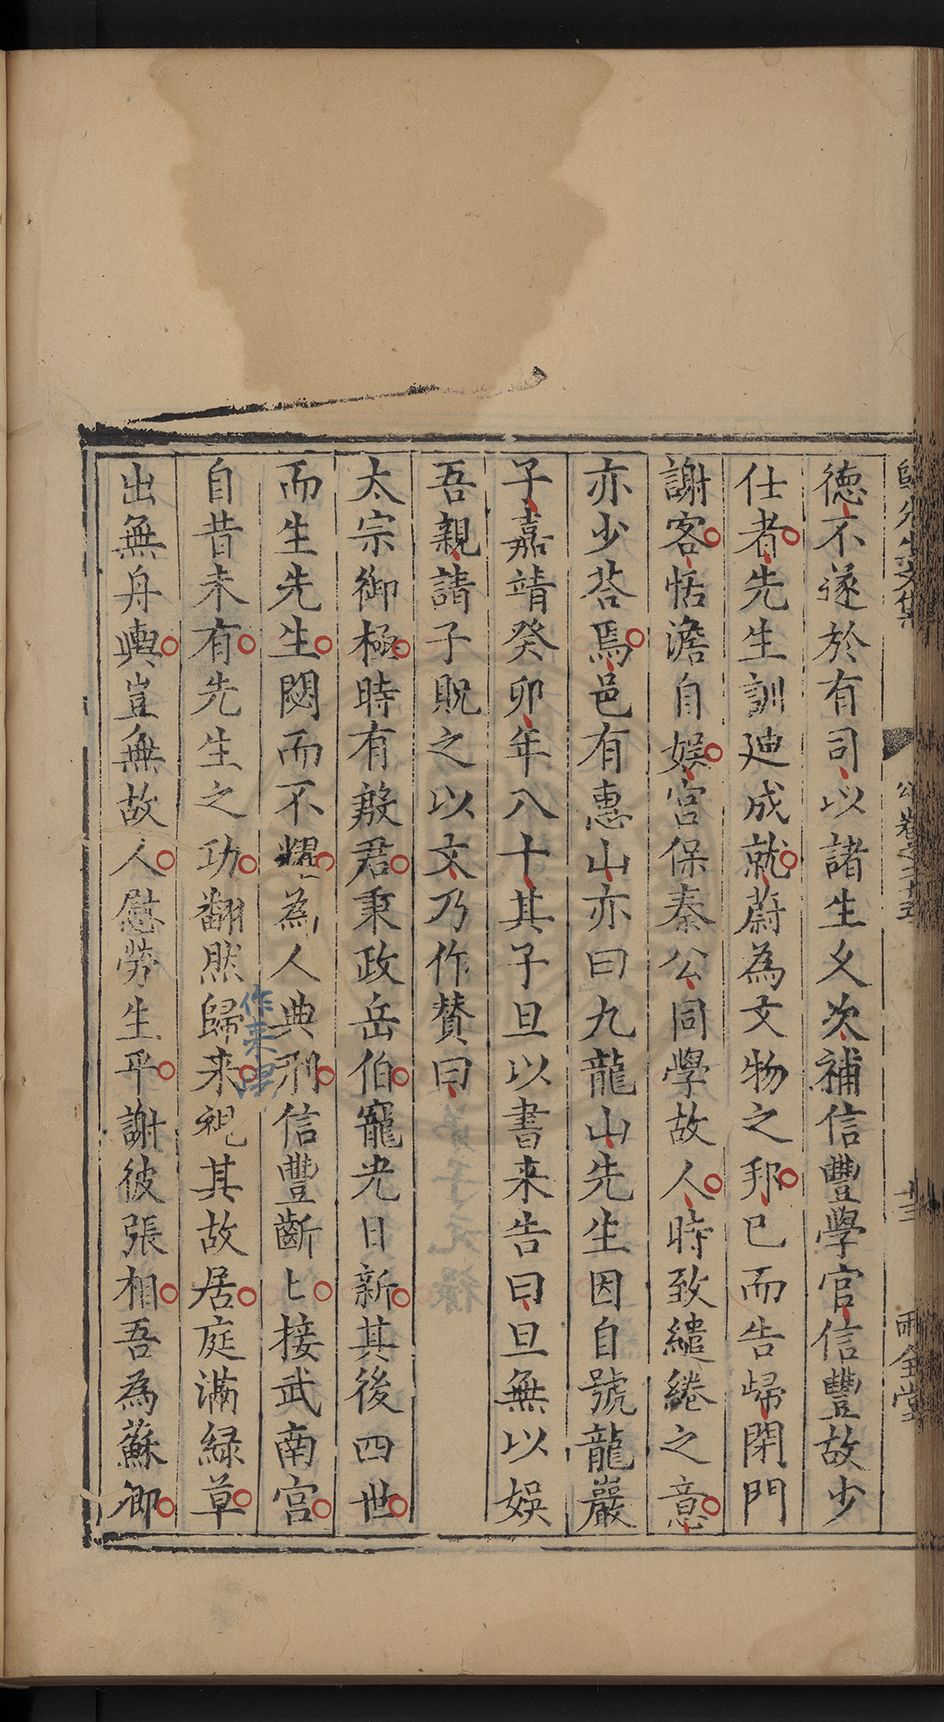 歸先生文集
卷之二十五
雨金堂
德不遂於有司以諸生久次補信豐學官信豐故少
仕者先生訓廸成就蔚為文物之邦已而告歸閉門
謝客恬澹自娛宮保秦公同學故人時致繾綣之意
亦少荅焉邑有惠山亦曰九龍山先生因自號龍巖
子嘉靖癸卯年八十其子旦以書来告曰旦無以娛
吾親請子貺之以文乃作賛曰
太宗御極時有殷君秉政岳伯寵光日新其後四世
而生先生閟而不耀為人典刑信豐齗ヒ接武南宮
作来
自昔未有先生之功翻然歸来視其故居庭滿緑草
出無舟輿豈無故人慰勞生平謝彼張相吾為蘇卿